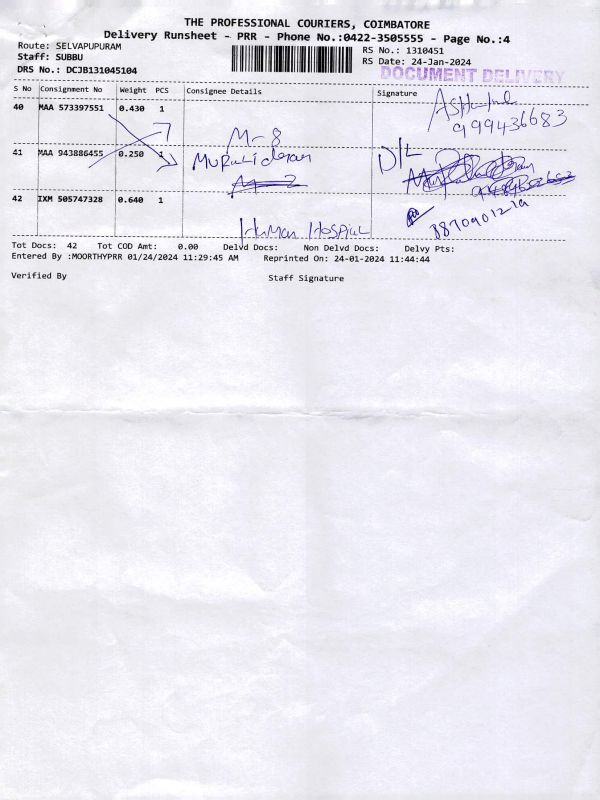 THE PROFESSIONAL COURIERS, COIMBATORE
Delivery Runsheet - PRR - Phone No.:0422-3505555 - Page No.:4
Route: SELVAPUPURAM
Staff: SUBBU
DRS No.: DCJB131045104
RS No.: 1310451
RS Date: 24-Jan-2024
DOCUMENT DELIVERY
S No Consignment No Weight PCS Consignee Details Signature
40 MAA 573397551 0.430 1
M-8
999436683
41 MAA 943886455 0.250 1
Muralidaran D/L
42 IXM 505747328 0.640 1
Human Hospital
Tot Docs: 42 Tot COD Amt: 0.00 Delvd Docs: Non Delvd Docs: Delvy Pts:
Entered By :MOORTHYPRR 01/24/2024 11:29:45 AM Reprinted On: 24-01-2024 11:44:44
Verified By Staff Signature